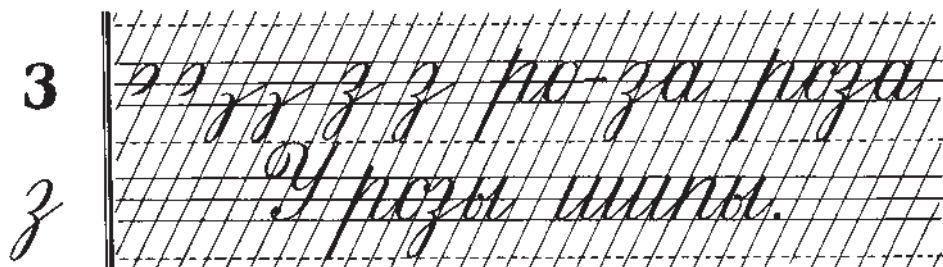 з з з ро-за роза
з У розы шипы.